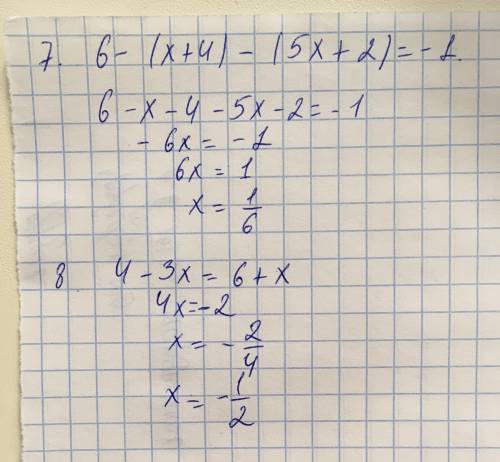 7. 6 - (x+4) - (5x+2) = -1.
6 - x - 4 - 5x - 2 = -1
- 6x = -1
6x = 1
x = 1/6
8 4 - 3x = 6 + x
4x = -2
x = - 2/4
x = - 1/2